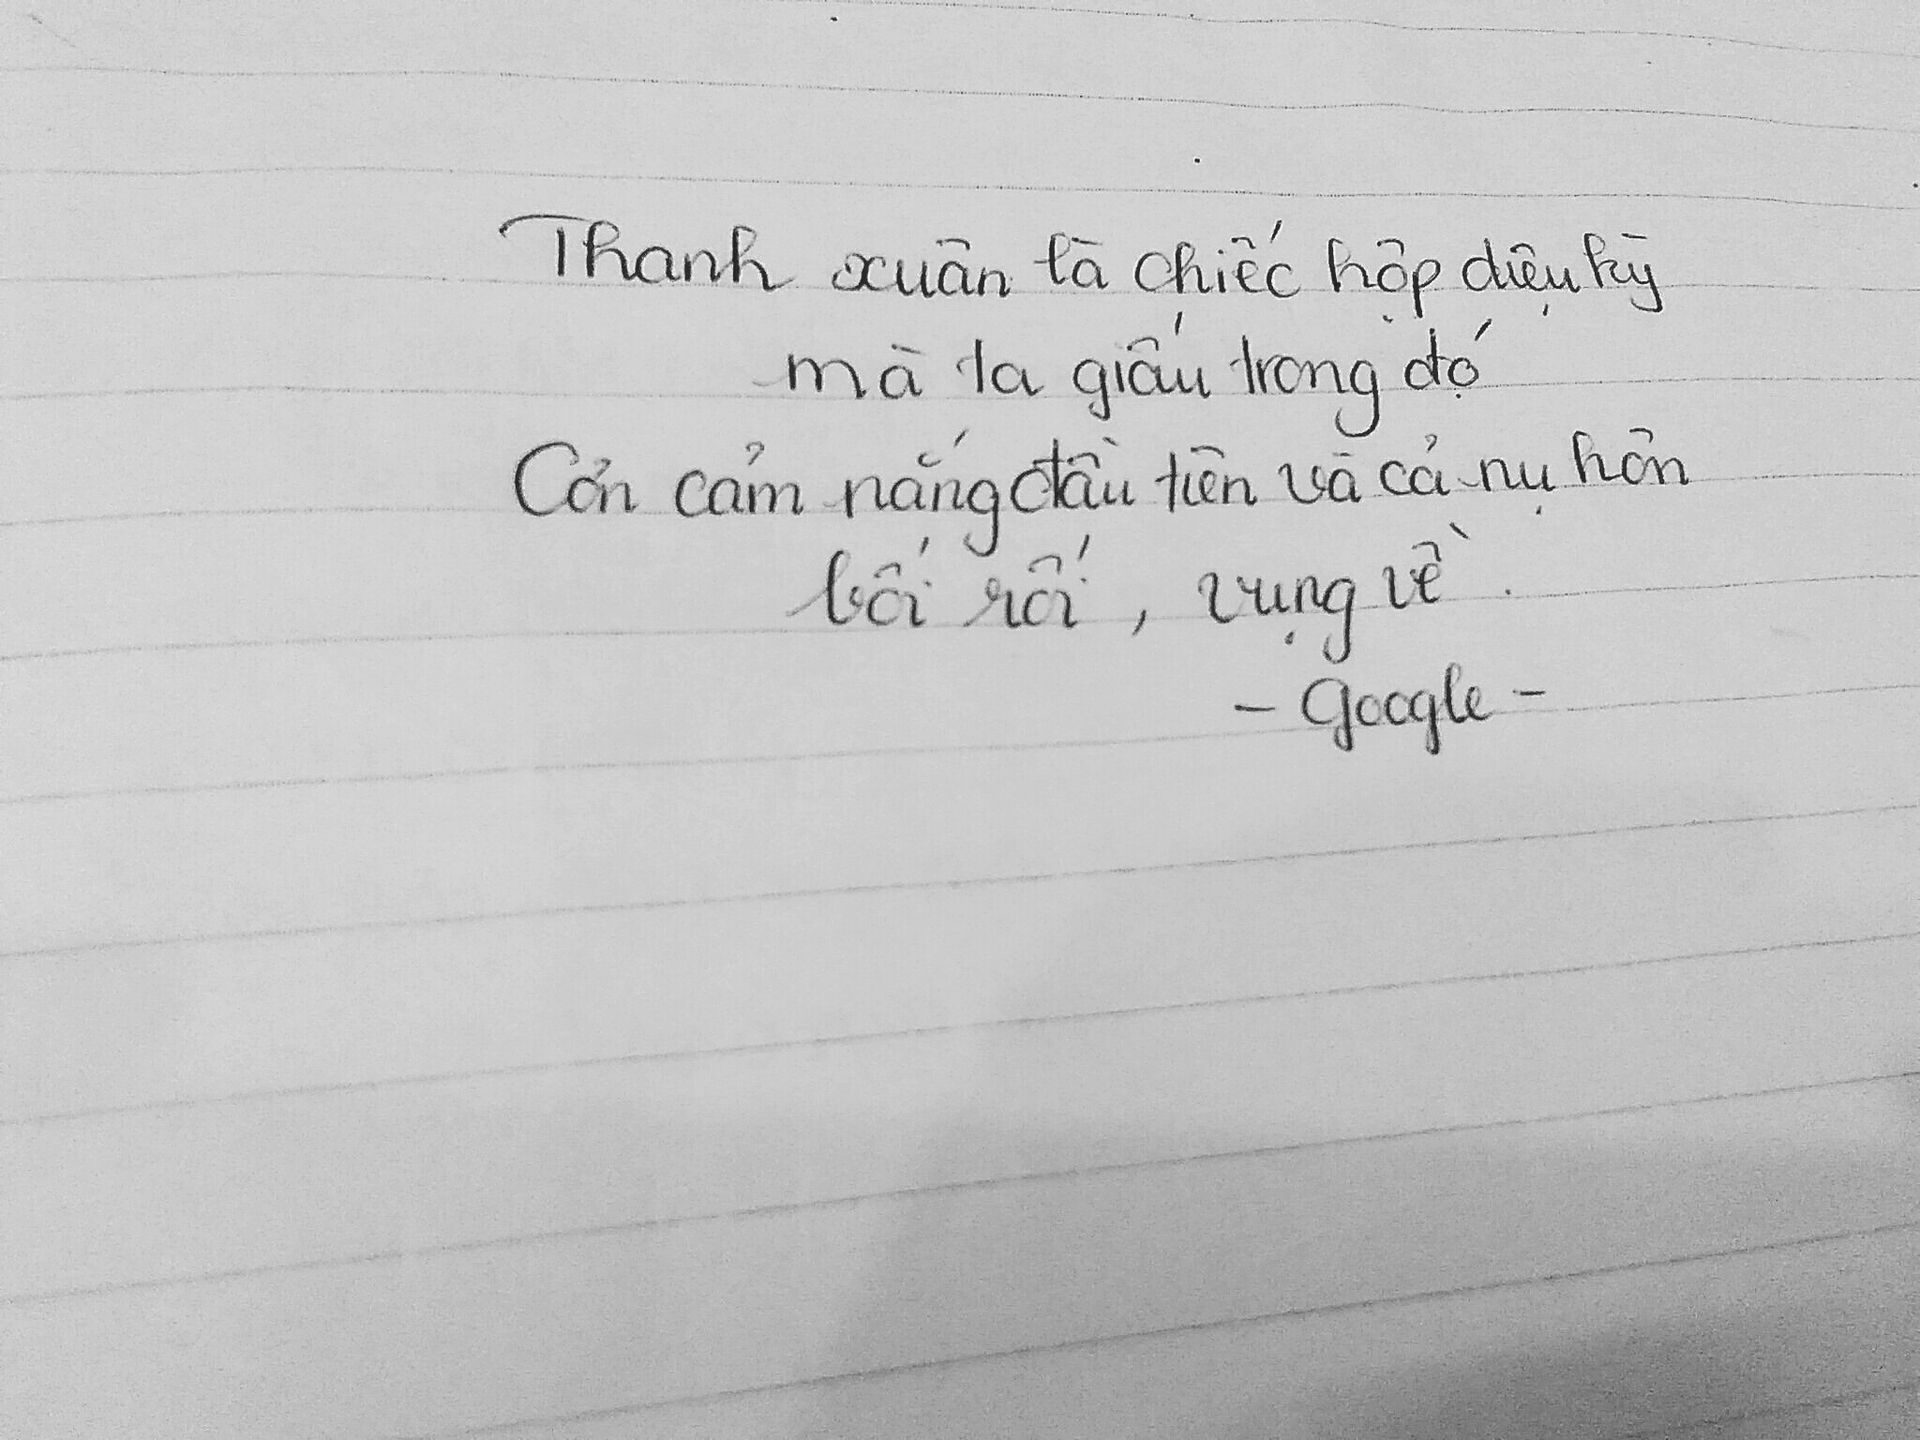 Thanh xuân là chiếc hộp diệu kỳ
mà ta giấu trong đó
Cơn cảm nắng đầu tiên và cả nụ hôn
bối rối, vụng về.
- Google -